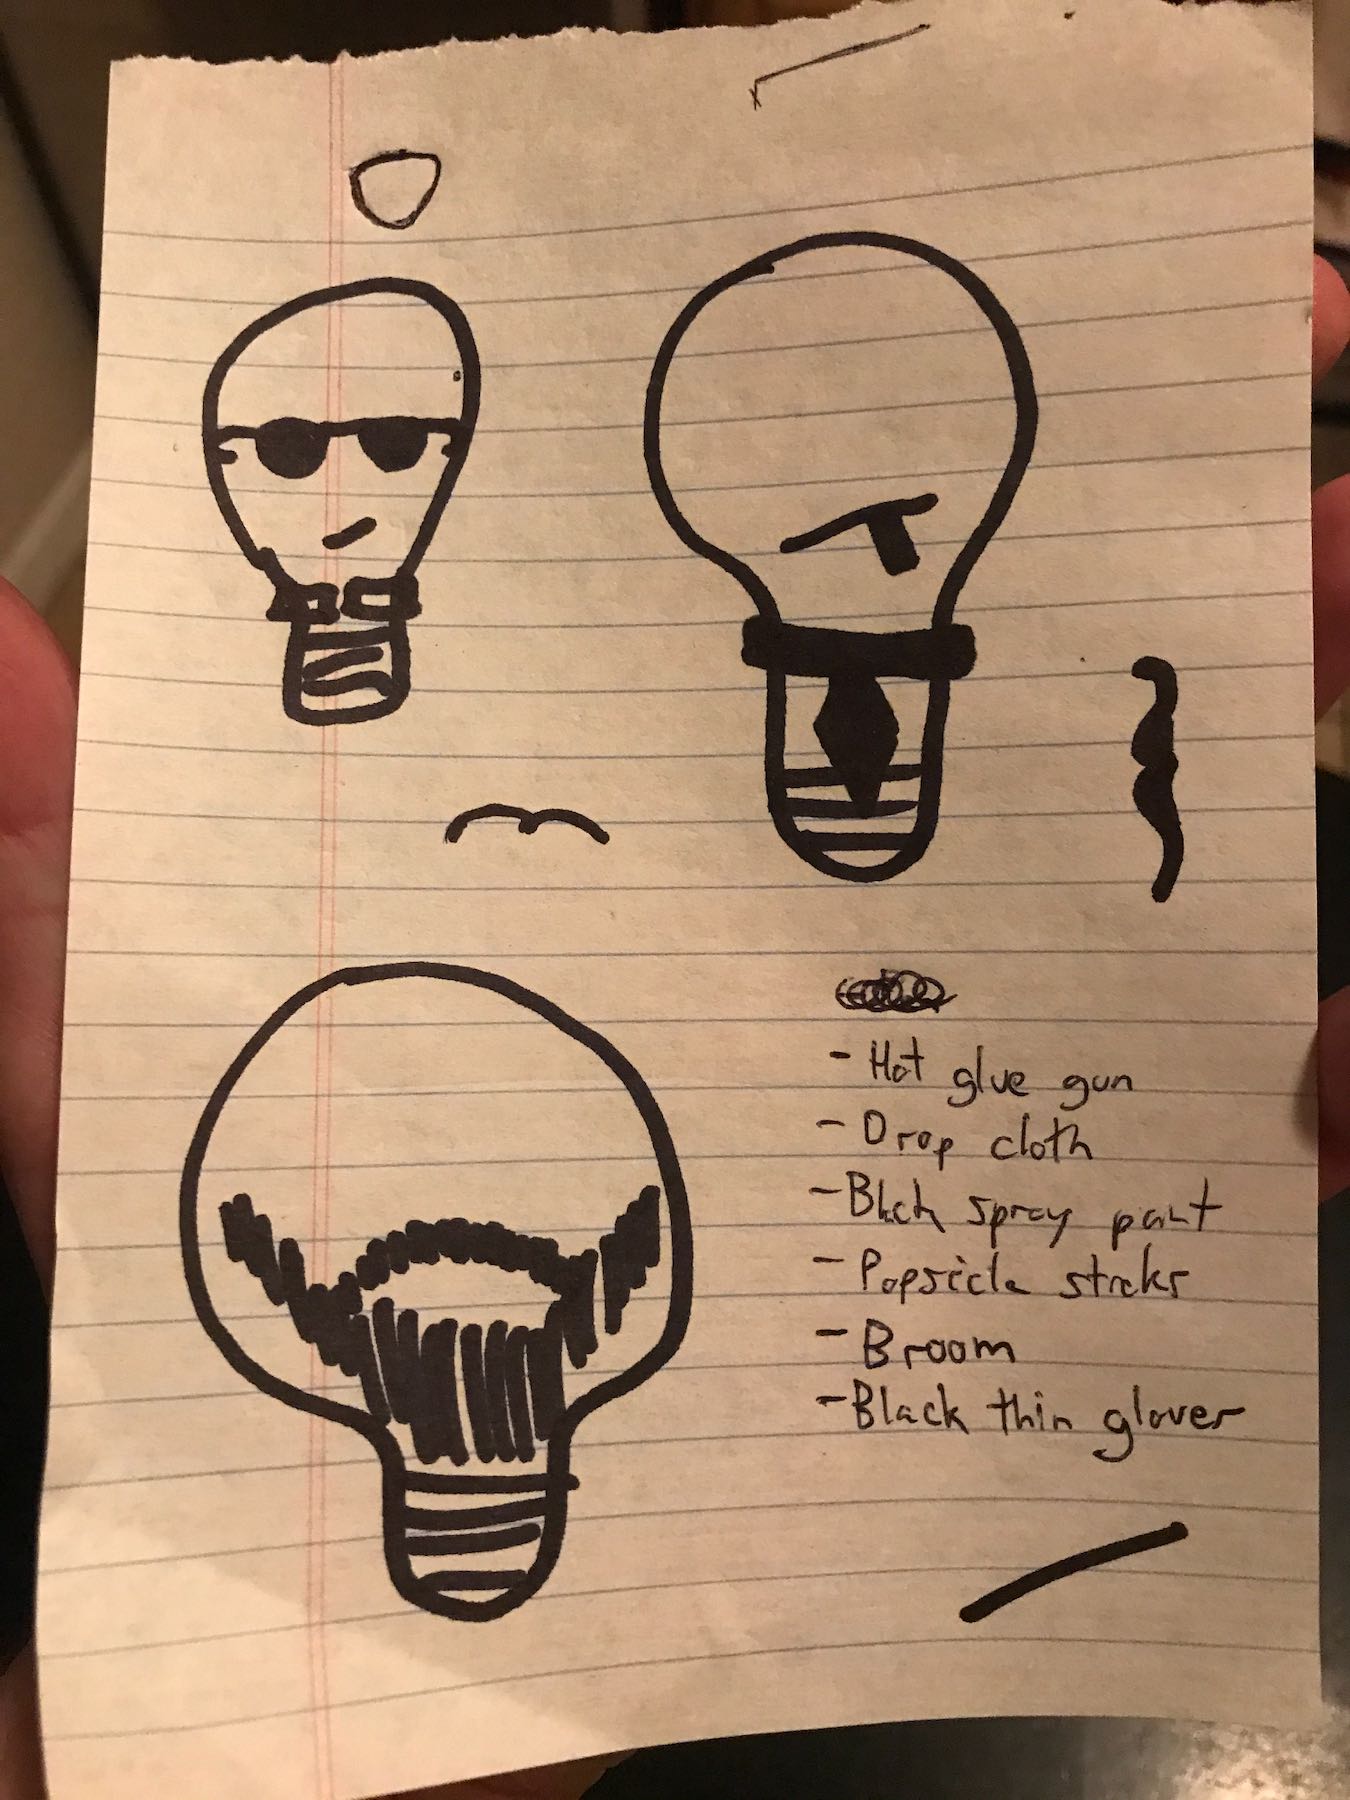 - Hot glue gun
- Drop cloth
- Black spray paint
- Popsicle sticks
- Broom
- Black thin gloves